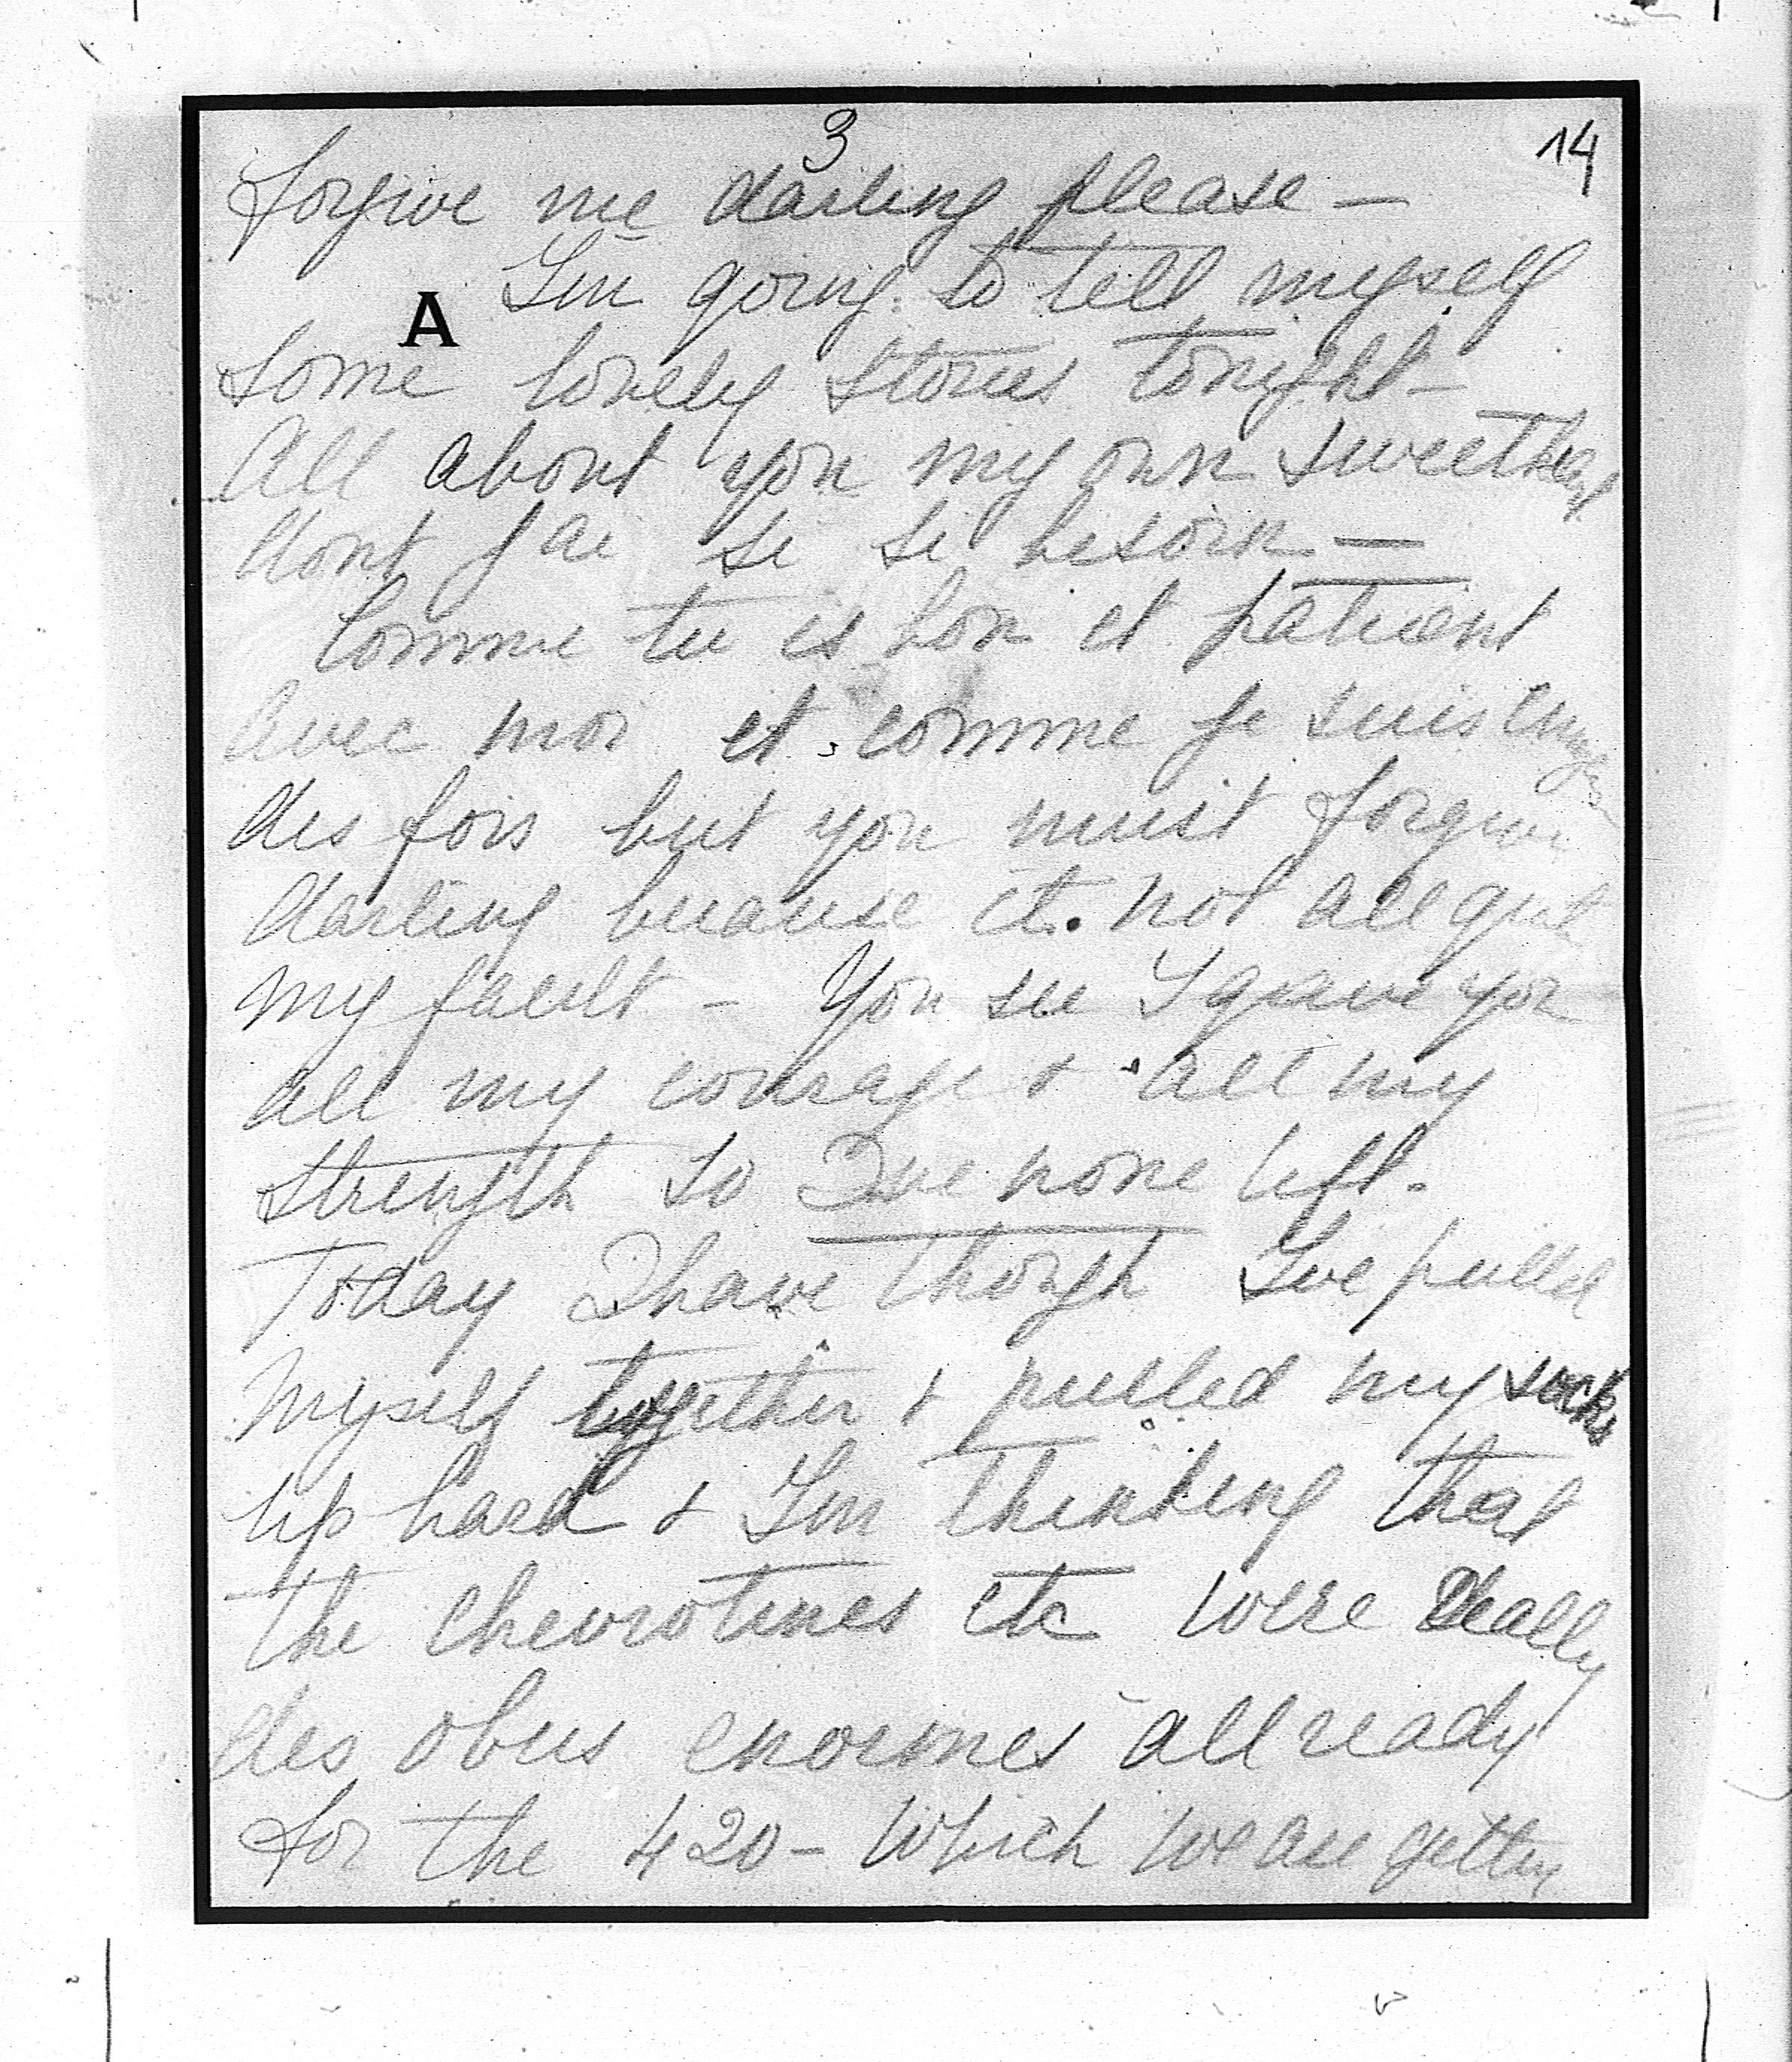 3
14
forgive me darling please —
A
I'm going to tell myself
some lovely stories tonight -
All about you my own sweetheart
dont j'ai si si besoin —
Comme tu es bon et patient
avec moi et comme je suis
des fois but you must forgive
darling because it. not all quite
my fault - You see I gave you
all my courage & all my
strength so I've none left.
Today I have though I've pulled
myself together & pulled my socks
up hard & I'm thinking that
the chevrotines etc were really
des obus enormes all ready
for the 420 - Which we are getting